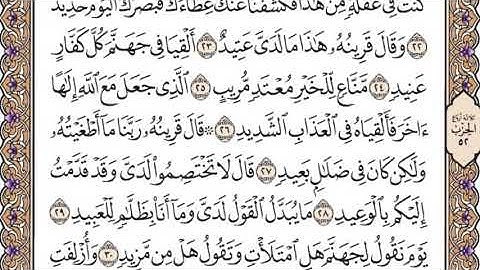 كُنتَ فِى غَفْلَةٍ مِّنْ هَٰذَا فَكَشَفْنَا عَنكَ غِطَآءَكَ فَبَصَرُكَ ٱلْيَوْمَ حَدِيدٌ
٢٢ وَقَالَ قَرِينُهُۥ هَٰذَا مَا لَدَىَّ عَتِيدٌ ٢٣ أَلْقِيَا فِى جَهَنَّمَ كُلَّ كَفَّارٍ
عَنِيدٍ ٢٤ مَّنَّاعٍ لِّلْخَيْرِ مُعْتَدٍ مُّرِيبٍ ٢٥ ٱلَّذِى جَعَلَ مَعَ ٱللَّهِ إِلَٰهًا
ءَاخَرَ فَأَلْقِيَاهُ فِى ٱلْعَذَابِ ٱلشَّدِيدِ ٢٦ ۞ قَالَ قَرِينُهُۥ رَبَّنَا مَآ أَطْغَيْتُهُۥ
وَلَٰكِن كَانَ فِى ضَلَٰلٍۭ بَعِيدٍ ٢٧ قَالَ لَا تَخْتَصِمُوا۟ لَدَىَّ وَقَدْ قَدَّمْتُ
إِلَيْكُم بِٱلْوَعِيدِ ٢٨ مَا يُبَدَّلُ ٱلْقَوْلُ لَدَىَّ وَمَآ أَنَا۠ بِظَلَّٰمٍ لِّلْعَبِيدِ ٢٩
يَوْمَ نَقُولُ لِجَهَنَّمَ هَلِ ٱمْتَلَأْتِ وَتَقُولُ هَلْ مِن مَّزِيدٍ ٣٠ وَأُزْلِفَتِ
ثلاثة أرباع
الحزب
٥٢